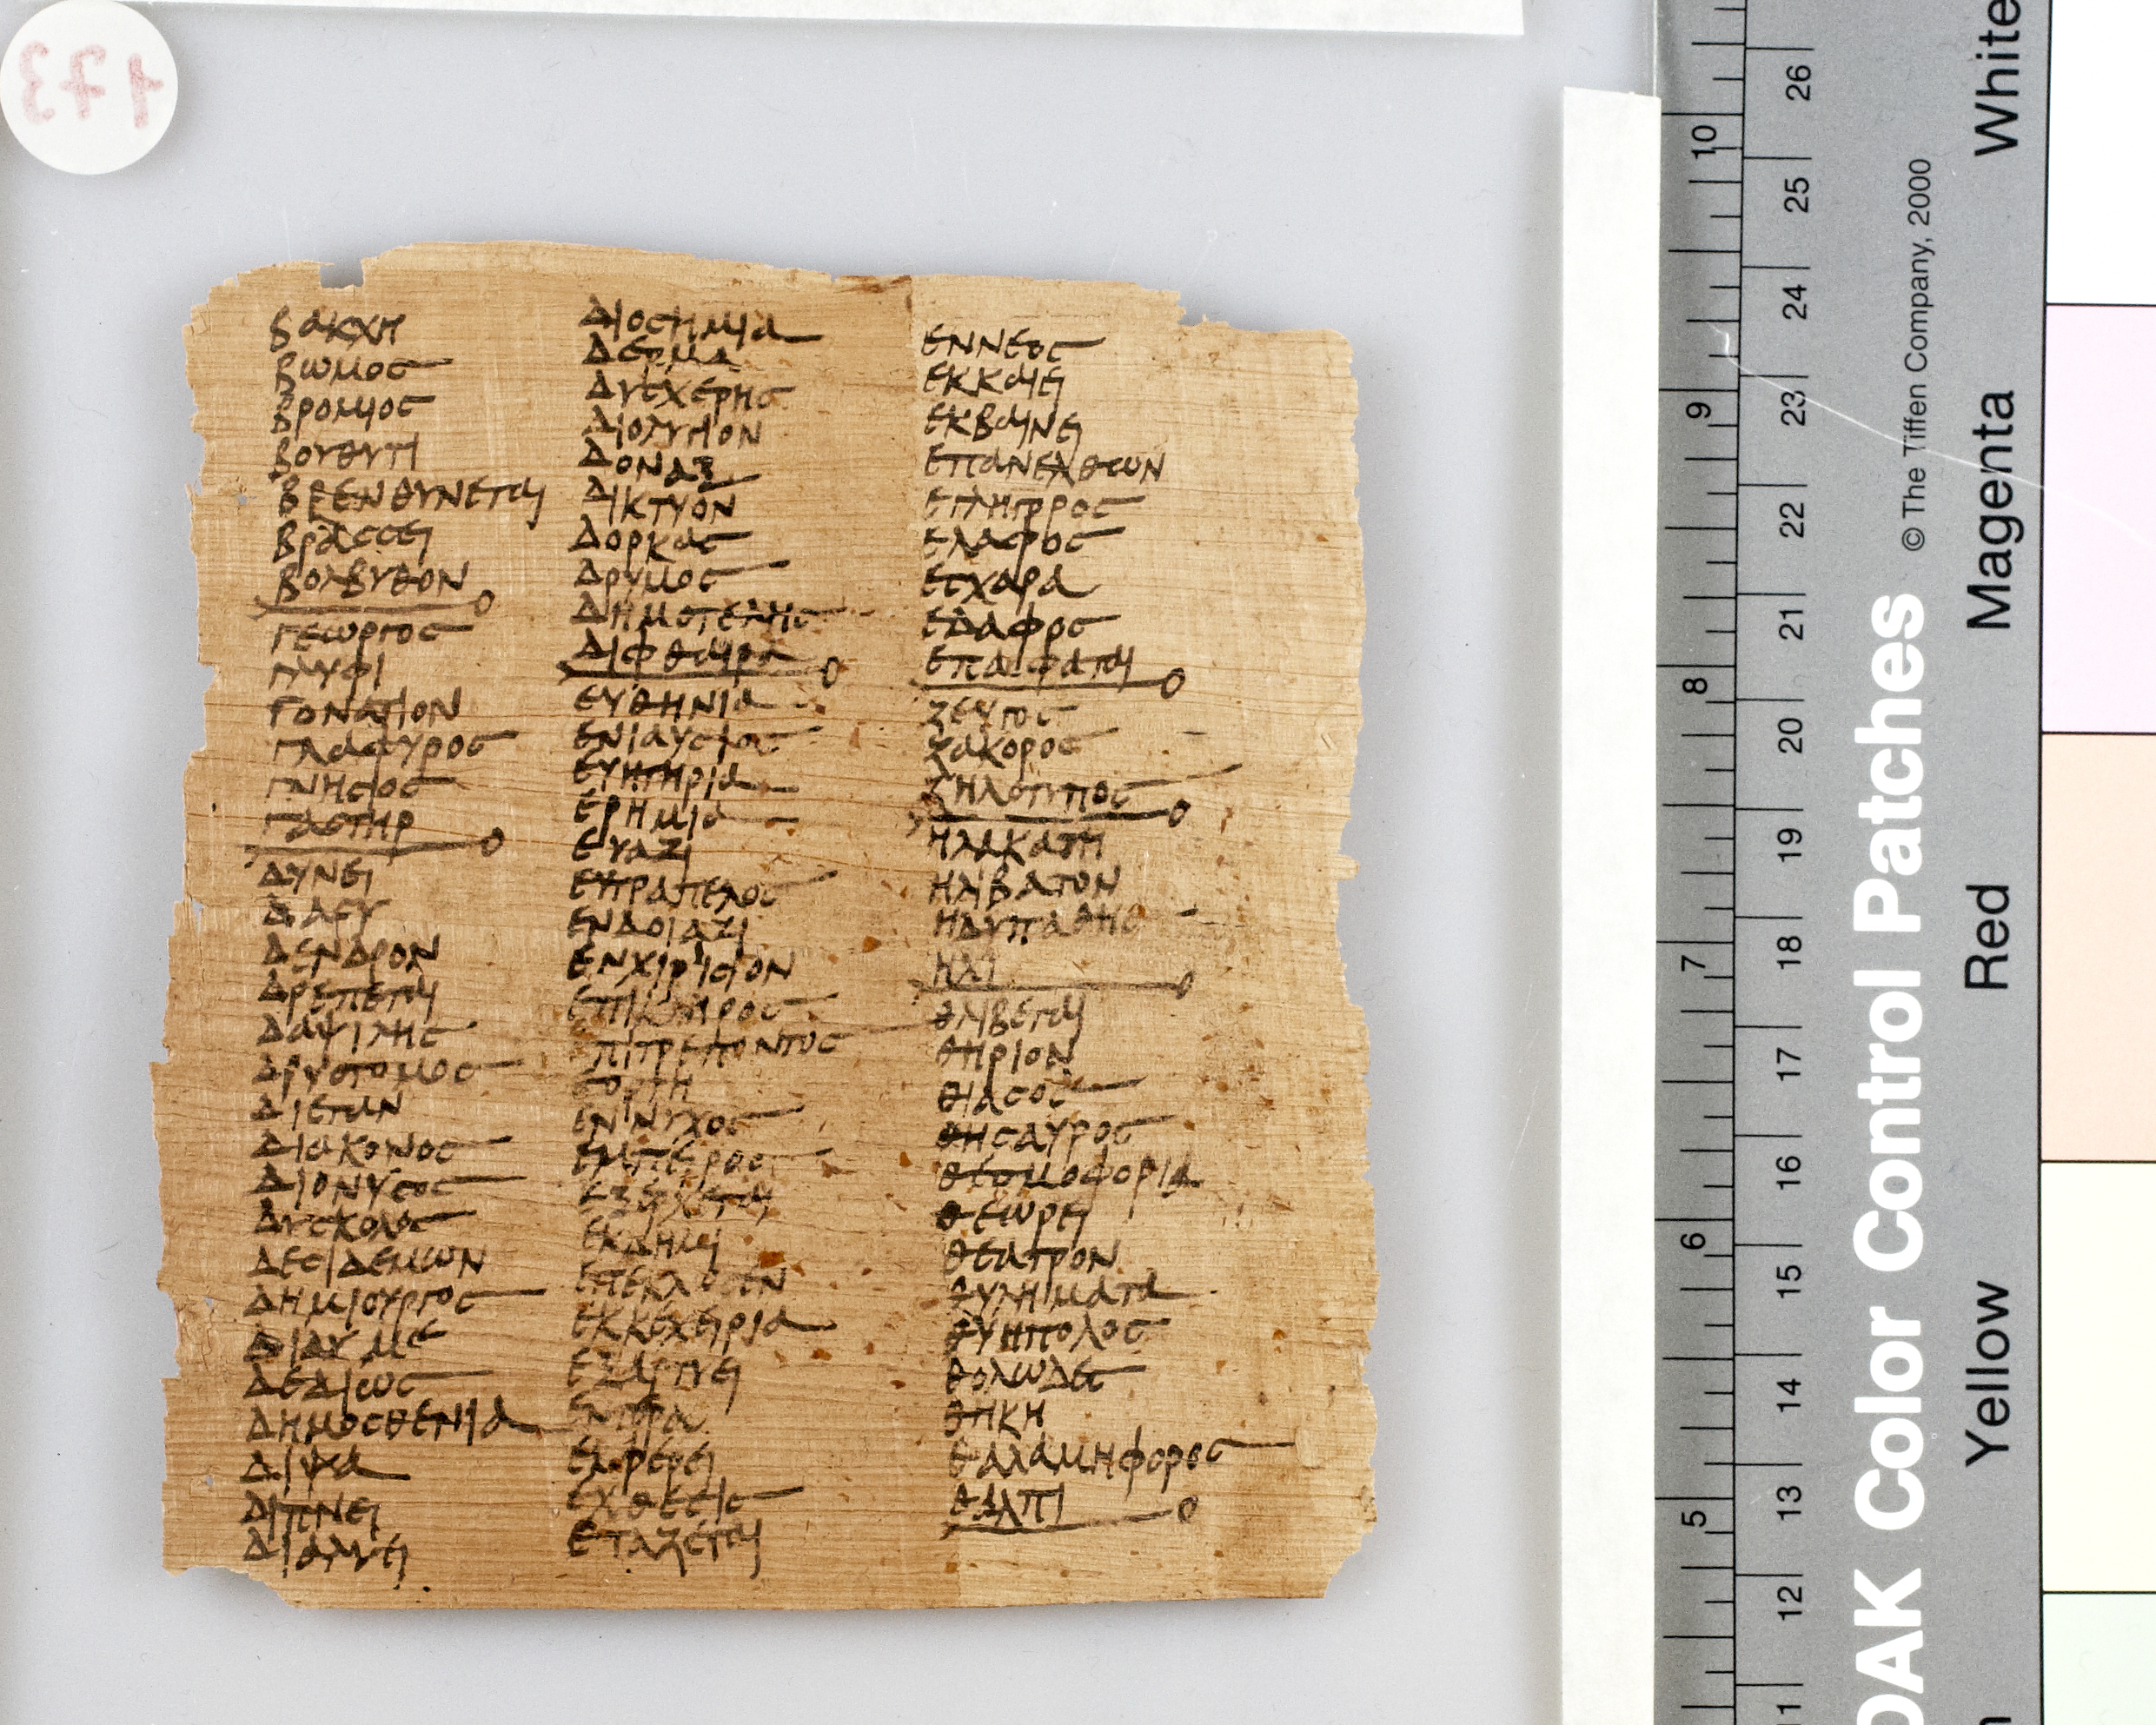 βακχη
βωμος
βρομιος
βουθυτι
βρενθυνεται
βρασσει
βολβυθον
γεωργος
γονατιον
γλαφυρος
γνησιος
γαστηρ
δυνει
δασυ
δενδρον
δρεπεται
δαψιλης
δρυοτομος
διετων
διακονος
διονυσος
δυσκολος
δεσιδεμων
δημιουργος
διδυμε
δεδιως
δημοσθενια
διψα
διπνει
διοσημια
δερμα
δυσχερης
διολυγιον
δοναξ
δικτυον
δορκας
δρυμος
δημοτελης
διφθαιρα
ευθηνια
ενιαυσιος
ευετηρια
ερημια
ευαζι
ευτραπελος
ενδοιαζι
ενχιριδιον
επικληρος
επιτρεποντος
εορτη
εννυχος
εμπειρος
εξερχεται
εκκεχειρια
εξαρτυει
εχθεσις
εταζεται
εννεος
εκκαιει
εκβαινει
επανελθων
ελαφος
εσχαρα
εδαφος
επαφαται
ζευγος
ζακορος
ζηλοτυπος
ηλακατη
ηλιβατον
ηδυπαθης
ηλι
θλιβεται
θηριον
θιασος
θησαυρος
θεσμοφορια
θεωρει
θεατρον
θυληματα
θυηπολος
θολωδες
θηκη
θαλαμηφορος
θαλπι
173
26
10
25
24
9
23
22
21
8
20
19
7
18
17
16
6
15
14
5
13
12
11
© The Tiffen Company, 2000
ODAK Color Control Patches
White
Magenta
Red
Yellow